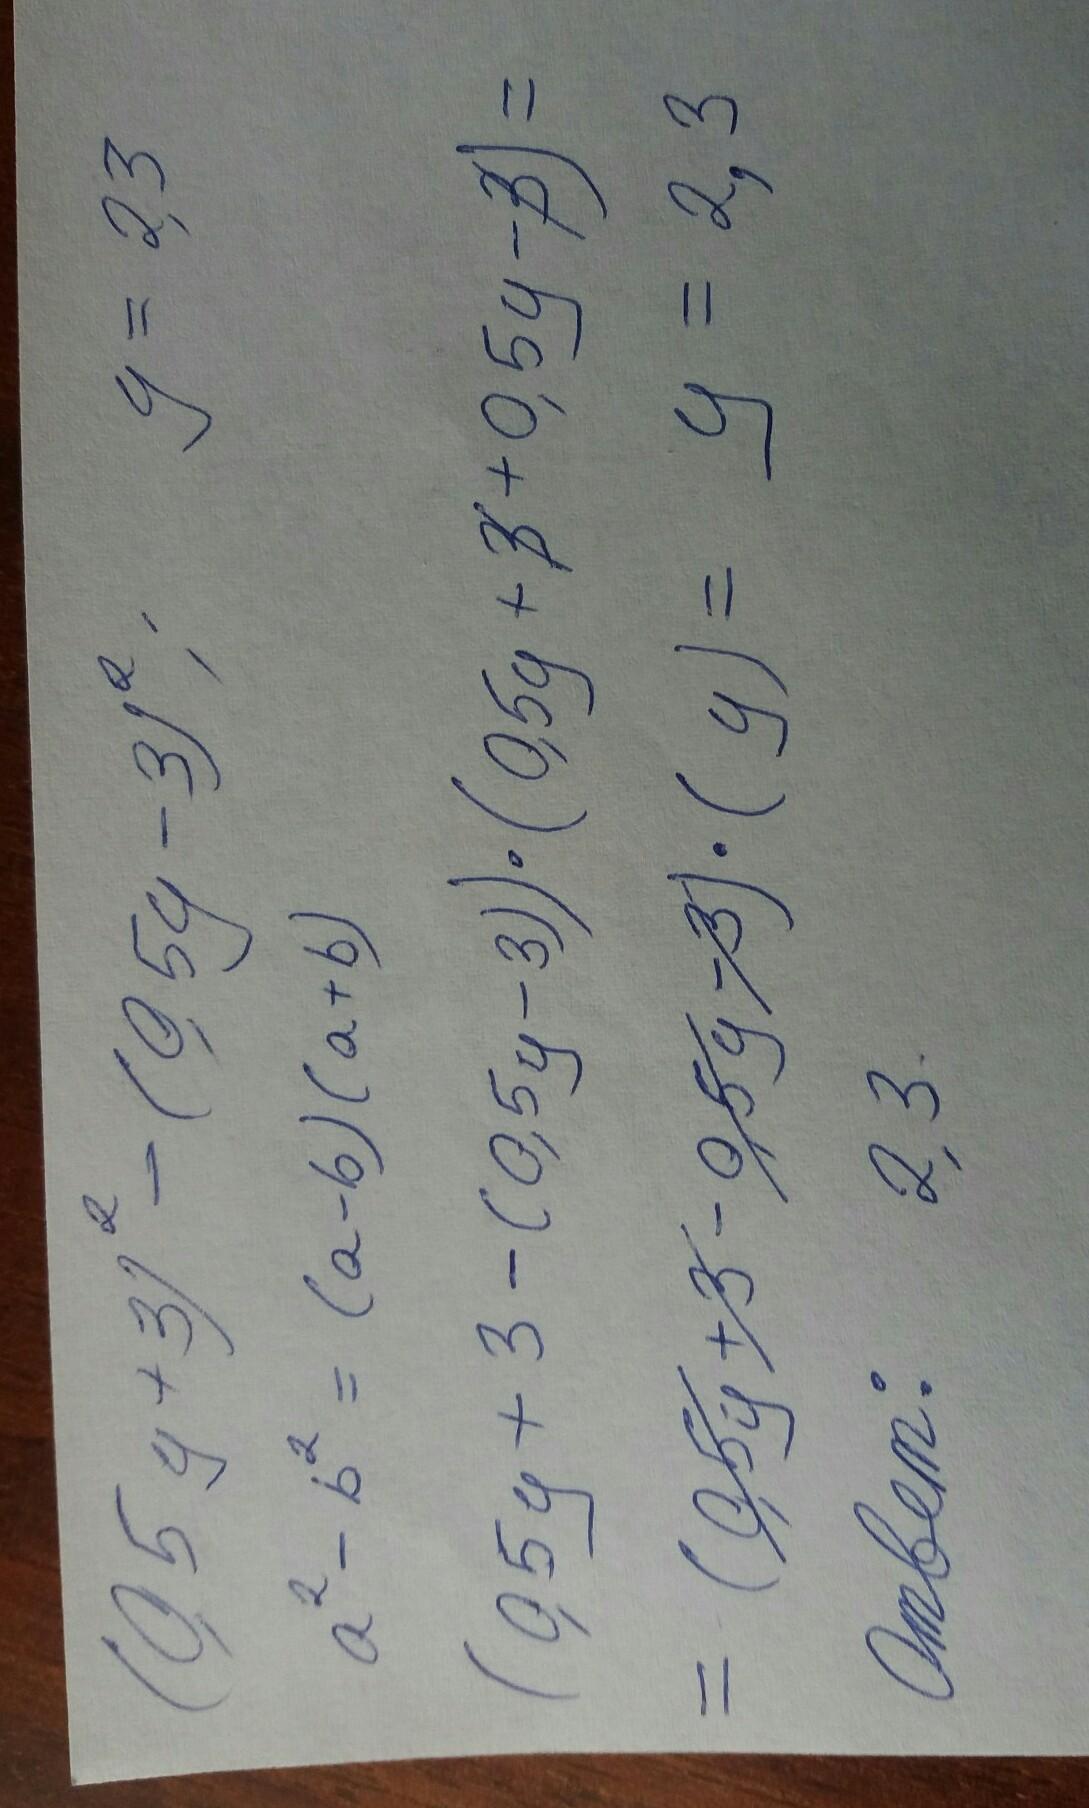 (0,5y+3)² - (0,5y-3)²; y = 2,3
a² - b² = (a-b)(a+b)
(0,5y+3-(0,5y-3))·(0,5y+3+0,5y-3)=
= (0,5y+3-0,5y-3)·(y)= y = 2,3
Ответ: 2,3